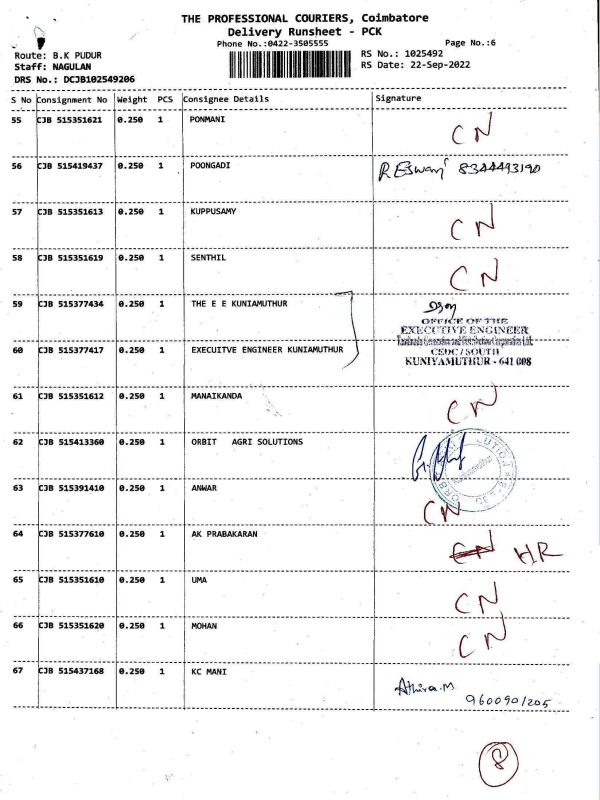 THE PROFESSIONAL COURIERS, Coimbatore
Delivery Runsheet - PCK
Phone No.:0422-3505555
Page No.:6
Route: B.K PUDUR
RS No.: 1025492
Staff: NAGULAN
RS Date: 22-Sep-2022
DRS No.: DCJB102549206
S No Consignment No Weight PCS Consignee Details Signature
55 CJB 515351621 0.250 1 PONMANI CN
56 CJB 515419437 0.250 1 POONGADI R Eswari 8344493190
57 CJB 515351613 0.250 1 KUPPUSAMY CN
58 CJB 515351619 0.250 1 SENTHIL CN
59 CJB 515377434 0.250 1 THE E E KUNIAMUTHUR
OFFICE OF THE
EXECUTIVE ENGINEER
Tamilnadu Generation and Distribution Corporation Ltd.
60 CJB 515377417 0.250 1 EXECUITVE ENGINEER KUNIAMUTHUR
CEDC / SOUTH
KUNIYAMUTHUR - 641 008
61 CJB 515351612 0.250 1 MANAIKANDA CN
62 CJB 515413360 0.250 1 ORBIT AGRI SOLUTIONS
63 CJB 515391410 0.250 1 ANWAR CN
64 CJB 515377610 0.250 1 AK PRABAKARAN CN HR
65 CJB 515351610 0.250 1 UMA CN
66 CJB 515351620 0.250 1 MOHAN CN
67 CJB 515437168 0.250 1 KC MANI Athira.M
9600901205
8